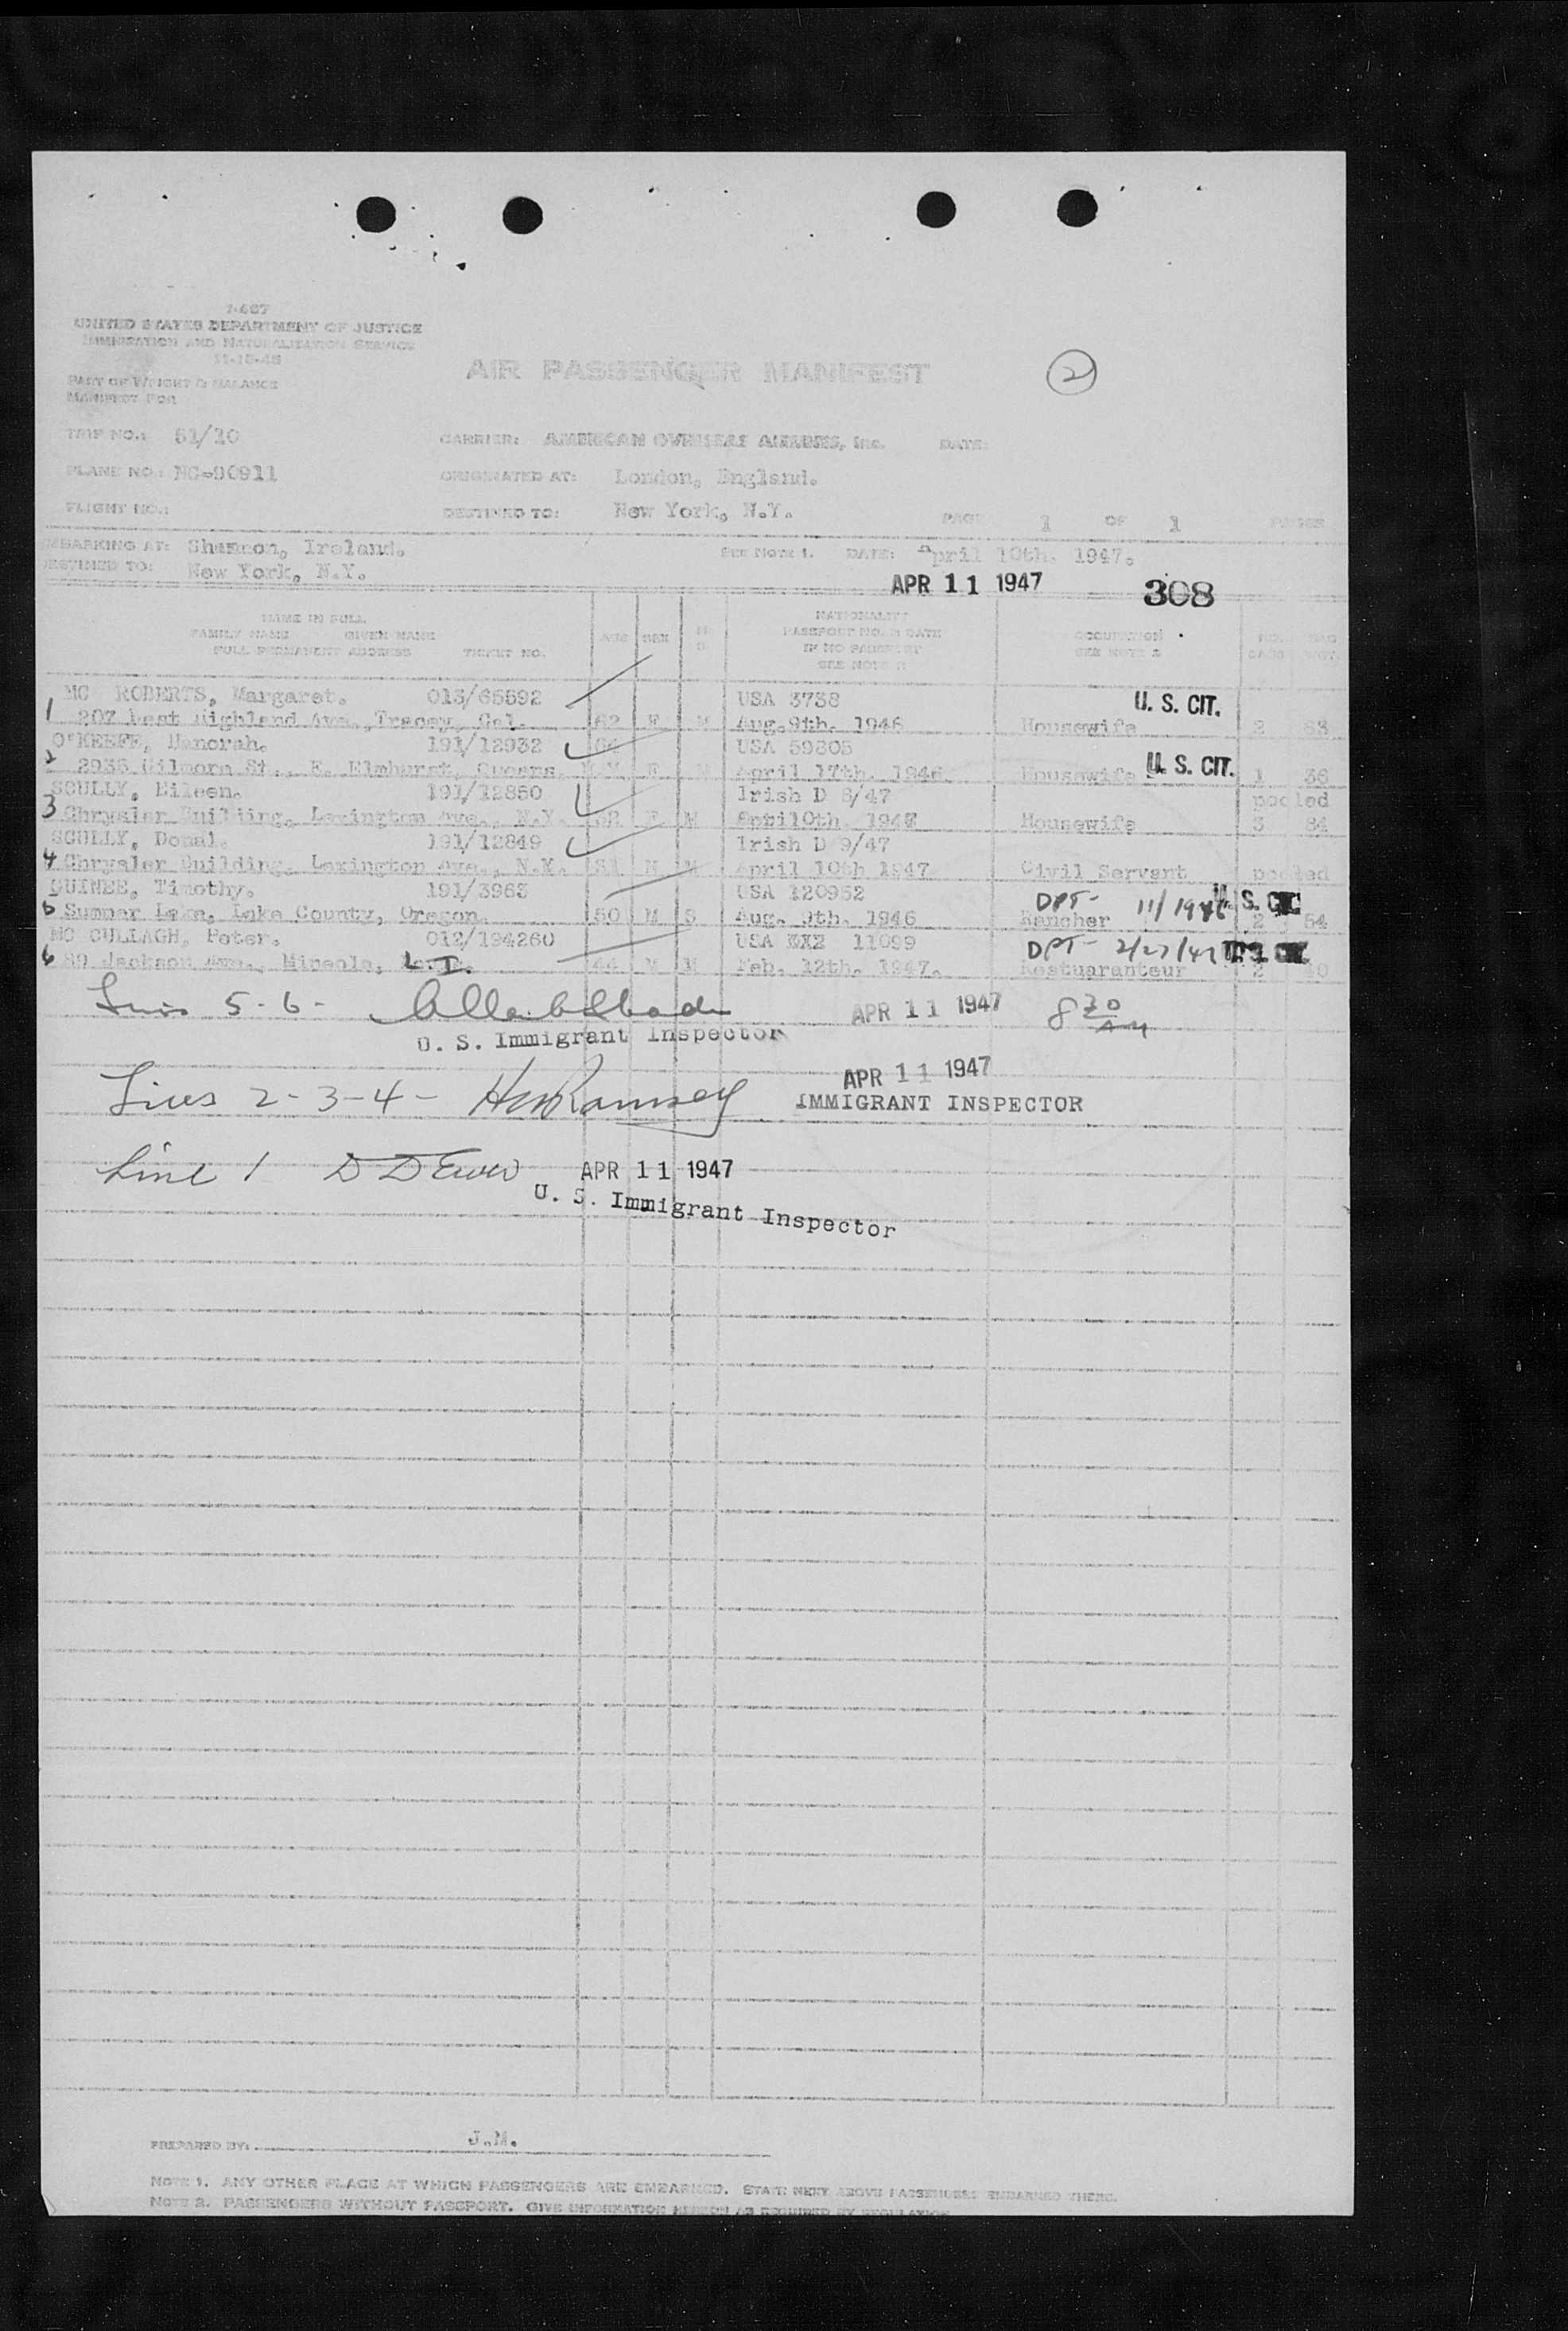 I-487
UNITED STATES DEPARTMENT OF JUSTICE
IMMIGRATION AND NATURALIZATION SERVICE
11-15-45
PART OF WEIGHT & BALANCE
MANIFEST FOR
AIR PASSENGER MANIFEST
2
TRIP NO.: 51/10 CARRIER: AMERICAN OVERSEAS AIRLINES, Inc. DATE:
PLANE NO.: NC-90911 ORIGINATED AT: London, England.
FLIGHT NO.: DESTINED TO: New York, N.Y. PAGE 1 OF 1 PAGES
EMBARKING AT: Shannon, Ireland. SEE NOTE 1. DATE: April 10th. 1947.
DESTINED TO: New York, N.Y.
APR 11 1947 308
NAME IN FULL
FAMILY NAME GIVEN NAME
FULL PERMANENT ADDRESS TICKET NO.
AGE SEX M S
NATIONALITY
PASSPORT NO. & DATE
IF NO PASSPORT
SEE NOTE 2
OCCUPATION
SEE NOTE 2
NO. BAGS BAG WGT.
MC ROBERTS, Margaret. 013/65592 USA 3738 U. S. CIT.
1 207 West Highland Ave., Tracey, Cal. 62 F M Aug.9th. 1946 Housewife 2 63
O'KEEFE, Hanorah. 191/12932 64 USA 59305
2 2935 Gilmore St., E. Elmhurst, Queens, N.Y. F M April 17th. 1946. Housewife U. S. CIT. 1 36
SCULLY, Eileen. 191/12850 Irish D 8/47 pooled
3 Chrysler Building, Lexington Ave., N.Y. 32 F M April 10th. 1947 Housewife 3 84
SCULLY, Donal. 191/12849 Irish D 9/47
4 Chrysler Building, Lexington Ave., N.Y. 31 M M April 10th 1947 Civil Servant pooled
GUINEE, Timothy. 191/3963 USA 120952 DPT- 11/1946 U. S. CIT.
5 Sumner Lake, Lake County, Oregon. 50 M S Aug. 9th. 1946 Rancher 2 54
MC CULLAGH, Peter. 012/194260 USA 11099 DPT- 2/27/47
6 89 Jackson Ave., Mineola, L.I. 44 M M Feb. 12th. 1947. Restuaranteur 2 40
Lines 5-6- APR 11 1947 8 30 AM
U. S. Immigrant Inspector
APR 11 1947
Lines 2-3-4- HWRamsey IMMIGRANT INSPECTOR
Line 1 APR 11 1947
U. S. Immigrant Inspector
PREPARED BY: J.M.
NOTE 1. ANY OTHER PLACE AT WHICH PASSENGERS ARE EMBARKED. STATE NEXT ABOVE PASSENGERS EMBARKED THERE.
NOTE 2. PASSENGERS WITHOUT PASSPORT. GIVE INFORMATION HEREON AS REQUIRED BY REGULATION